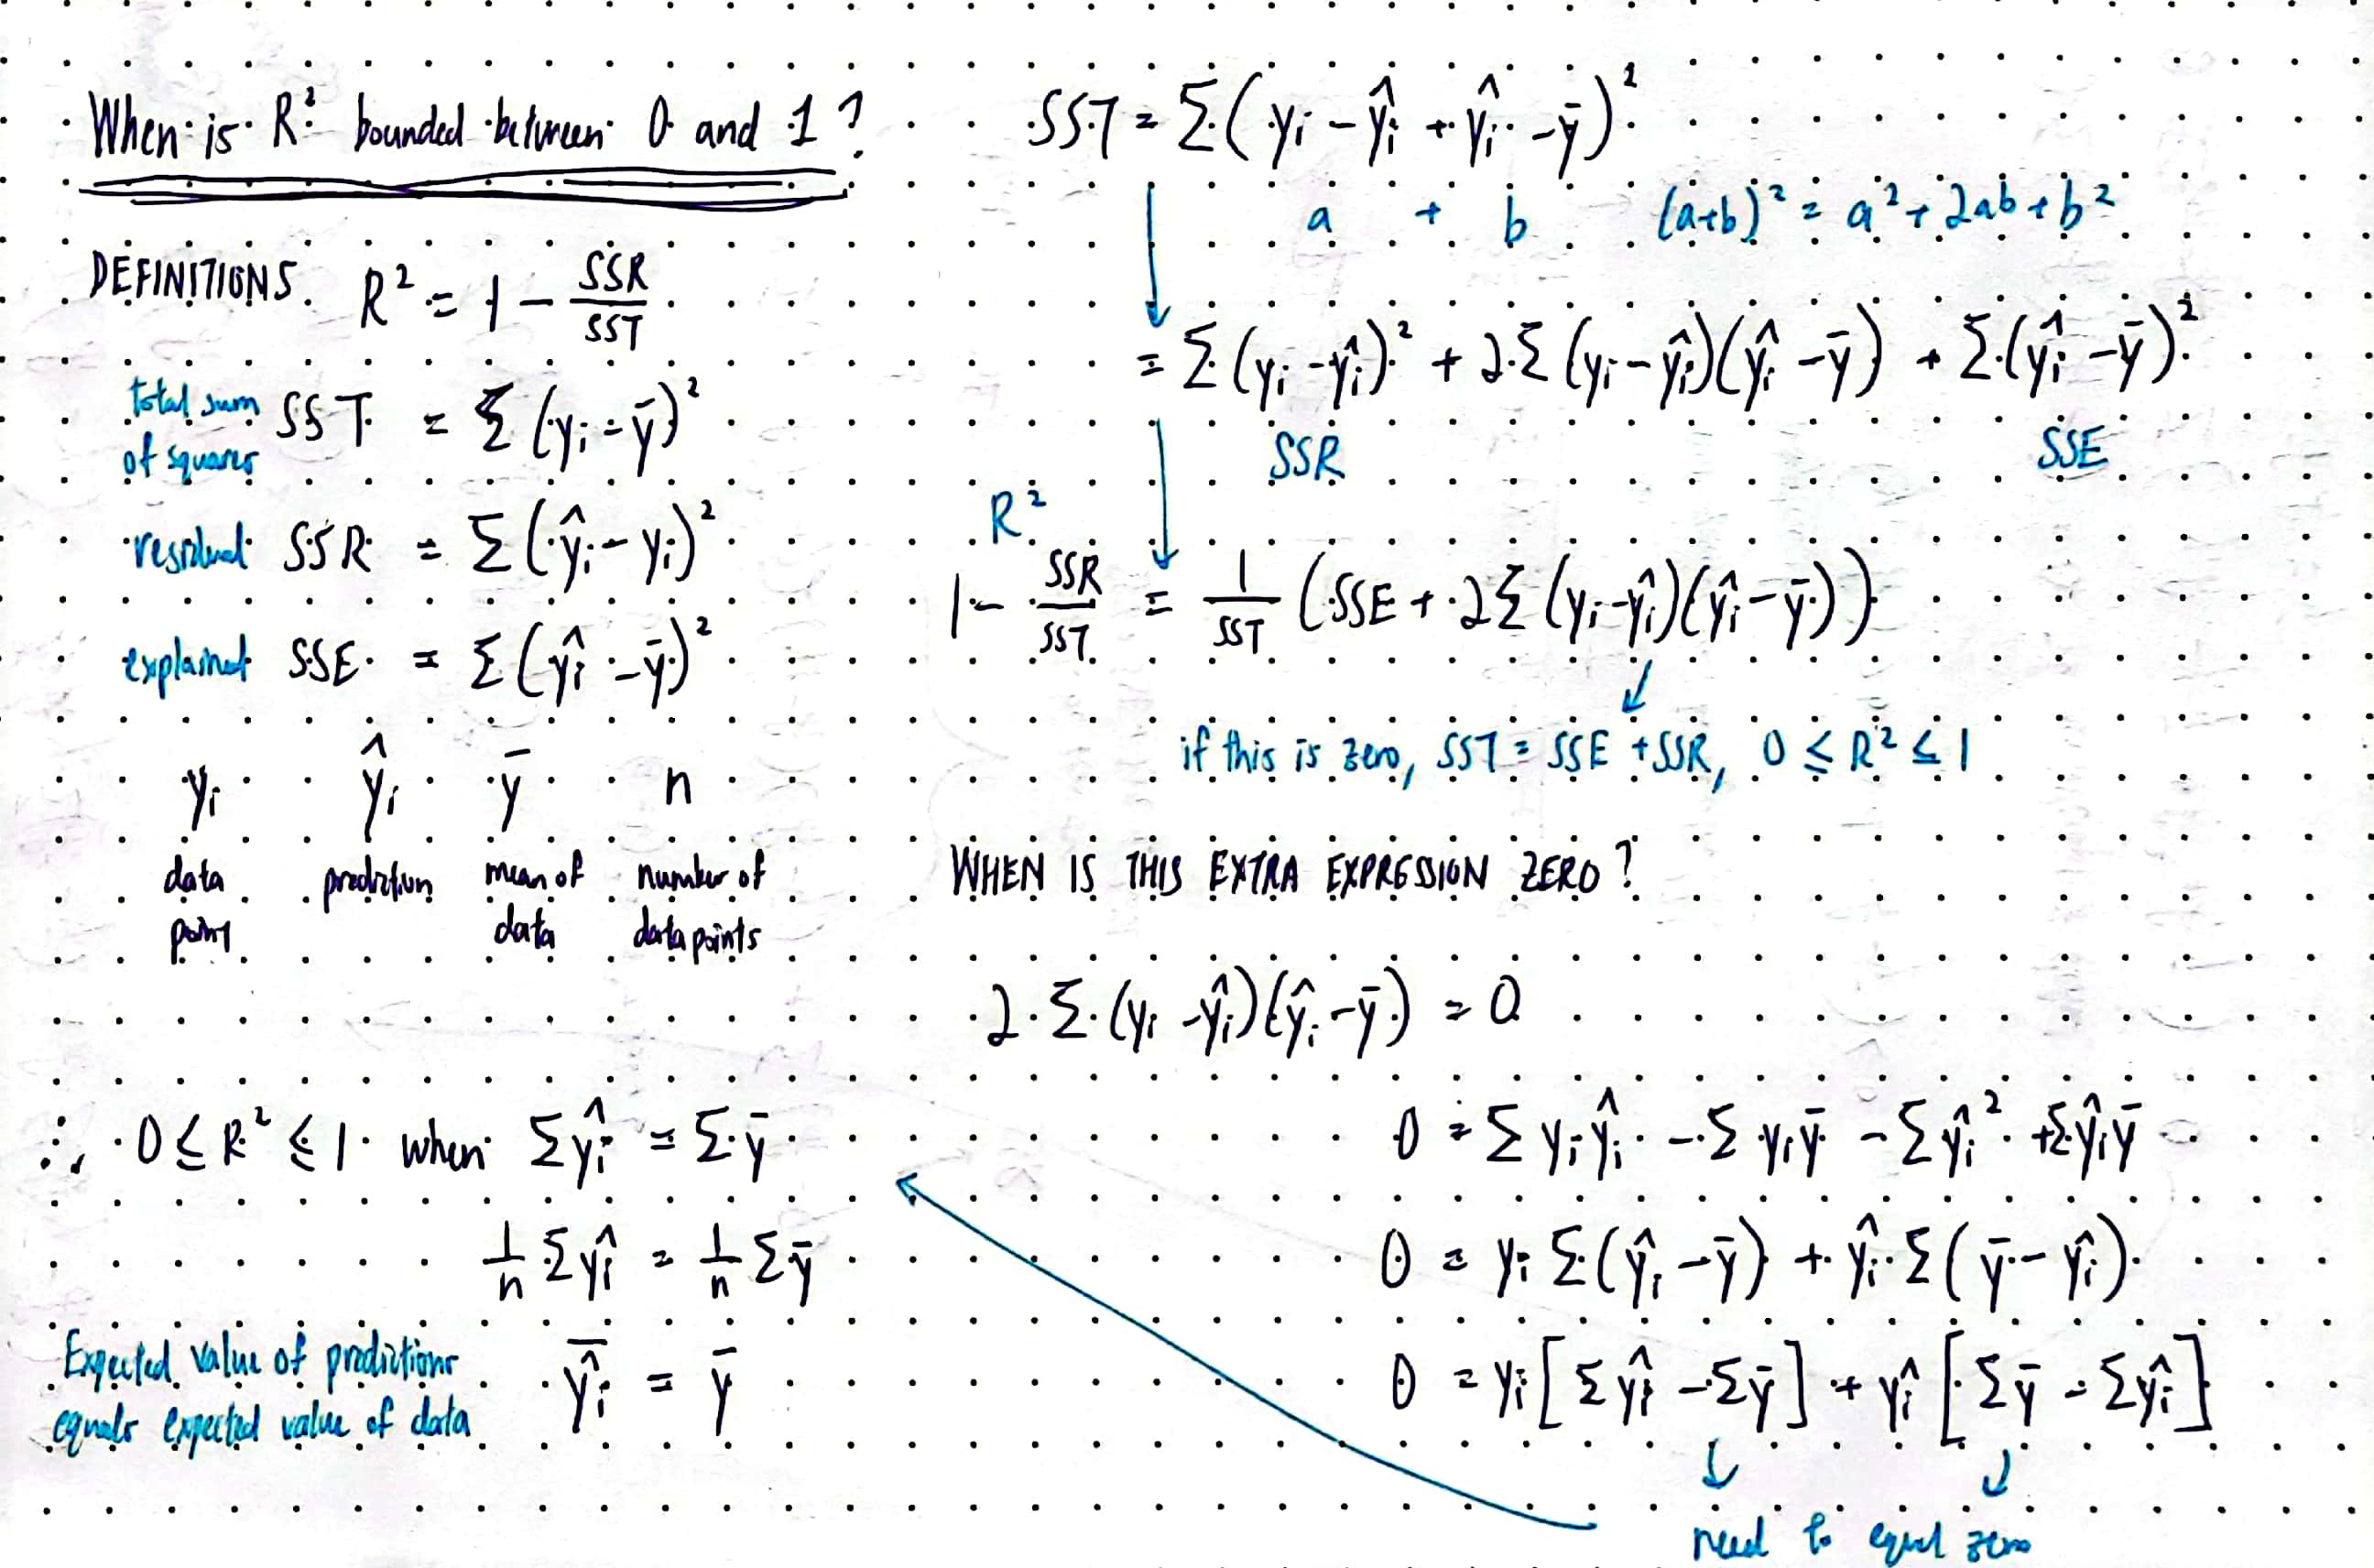 When is R² bounded between 0 and 1?
DEFINITIONS. R² = 1 - SSR/SST
total sum of squares SST = Σ(yᵢ - ȳ)²
residual SSR = Σ(ŷᵢ - yᵢ)²
explained SSE = Σ(ŷᵢ - ȳ)²
yᵢ ŷᵢ ȳ n
data point prediction mean of data number of datapoints
∴ 0 ≤ R² ≤ 1 when Σŷᵢ = Σȳ
1/n Σŷᵢ = 1/n Σȳ
Expected value of predictions
equals expected value of data
ŷᵢ̅ = ȳ
SST = Σ(yᵢ - ŷᵢ + ŷᵢ - ȳ)²
a + b (a+b)² = a² + 2ab + b²
= Σ(yᵢ - ŷᵢ)² + 2Σ(yᵢ - ŷᵢ)(ŷᵢ - ȳ) + Σ(ŷᵢ - ȳ)²
SSR SSE
R²
1 - SSR/SST = 1/SST (SSE + 2Σ(yᵢ - ŷᵢ)(ŷᵢ - ȳ))
if this is zero, SST = SSE + SSR, 0 ≤ R² ≤ 1
WHEN IS THIS EXTRA EXPRESSION ZERO?
2Σ(yᵢ - ŷᵢ)(ŷᵢ - ȳ) = 0
0 = Σyᵢŷᵢ - Σyᵢȳ - Σŷᵢ² + Σŷᵢȳ
0 = yᵢΣ(ŷᵢ - ȳ) + ŷᵢΣ(ȳ - ŷᵢ)
0 = yᵢ[Σŷᵢ - Σȳ] + ŷᵢ[Σȳ - Σŷᵢ]
need to equal zero